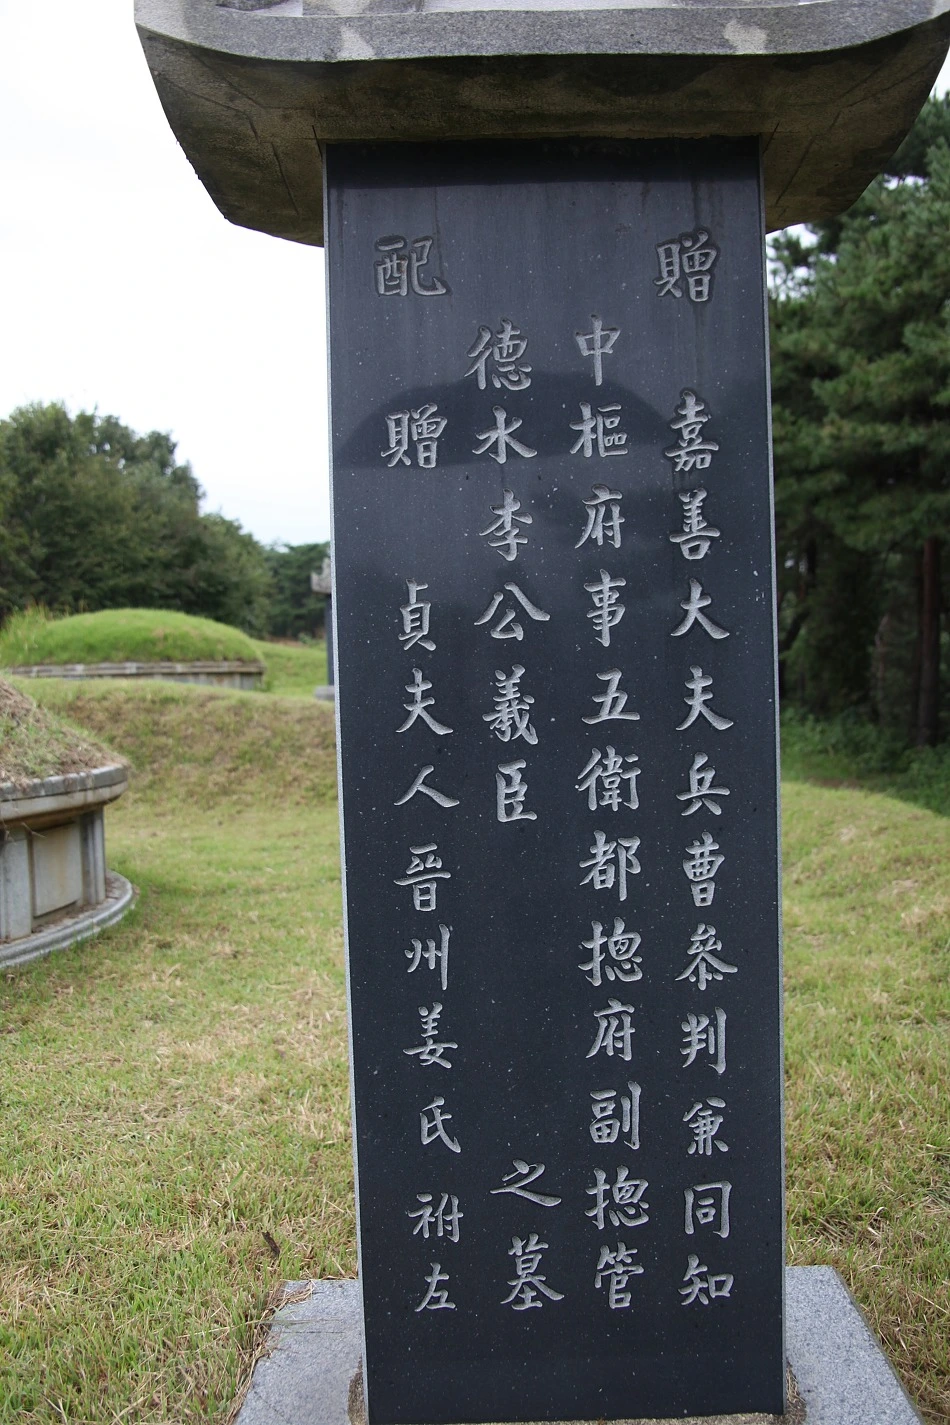 贈 嘉善大夫兵曹參判兼同知
中樞府事五衛都摠府副摠管
德水李公羲臣 之墓
配 贈 貞夫人晉州姜氏 祔左